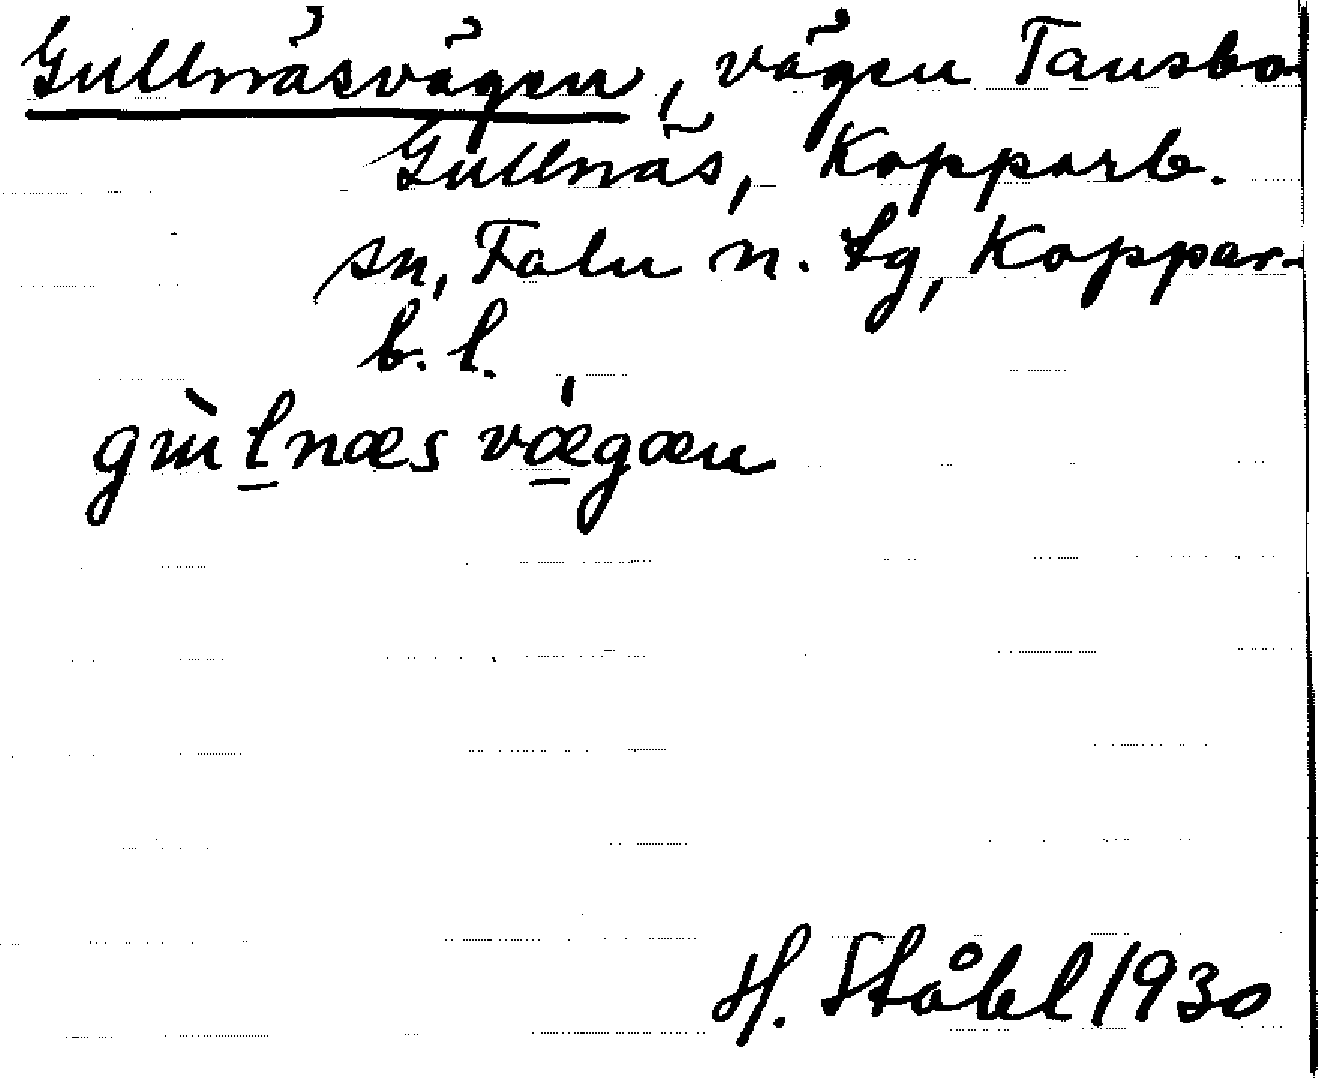 Gullnäsvägen, vägen Tansbo-
Gullnäs, Kopparb.
sn, Falu n. tg, Koppar-
b. l.
gùlnæs vǽgæn
H. Ståhl 1930